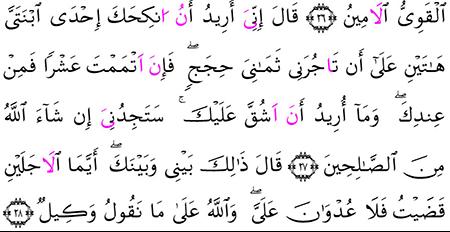 اَلْقَوِىُّ اُلَامِينُ ٢٦ قَالَ إِنِّىَ أُرِيدُ أَنُ انكِحَكَ إِحْدَى اَبْنَتَىَّ
هَٰتَيْنِ عَلَىٰٓ أَن تَاجُرَنِى ثَمَٰنِىَ حِجَجٍۖ فَإِنَ اَتْمَمْتَ عَشْرًا فَمِنْ
عِندِكَۖ وَمَآ أُرِيدُ أَنَ اَشُقَّ عَلَيْكَۚ سَتَجِدُنِىَ إِن شَآءَ اَللَّهُ
مِنَ اَلصَّٰلِحِينَ ٢٧ قَالَ ذَٰلِكَ بَيْنِى وَبَيْنَكَۖ أَيَّمَا اَلَاجَلَيْنِ
قَضَيْتُ فَلَا عُدْوَٰنَ عَلَىَّۖ وَاللَّهُ عَلَىٰ مَا نَقُولُ وَكِيلٌ ٢٨